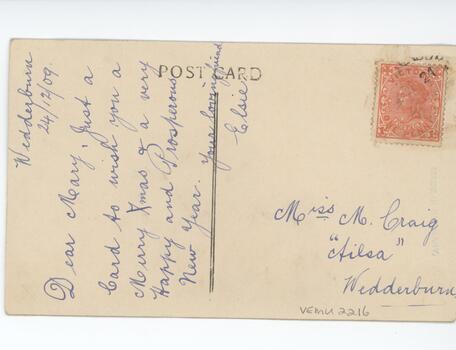 POST CARD
Wedderburn
24/12/09.
Dear Mary, Just a
Card to wish you a
Merry Xmas & a very
Happy and Prosperous
New Year. Your loving friend
Elsie
Miss M. Craig
"Ailsa"
Wedderburn
VEMU 2216